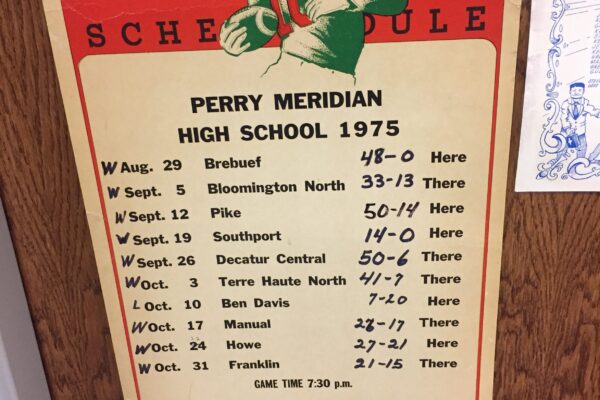 SCHEDULE
PERRY MERIDIAN
HIGH SCHOOL 1975
W Aug. 29 Brebuef 48-0 Here
W Sept. 5 Bloomington North 33-13 There
W Sept. 12 Pike 50-14 Here
W Sept. 19 Southport 14-0 Here
W Sept. 26 Decatur Central 50-6 There
W Oct. 3 Terre Haute North 41-7 There
L Oct. 10 Ben Davis 7-20 Here
W Oct. 17 Manual 26-17 There
W Oct. 24 Howe 27-21 Here
W Oct. 31 Franklin 21-15 There
GAME TIME 7:30 p.m.